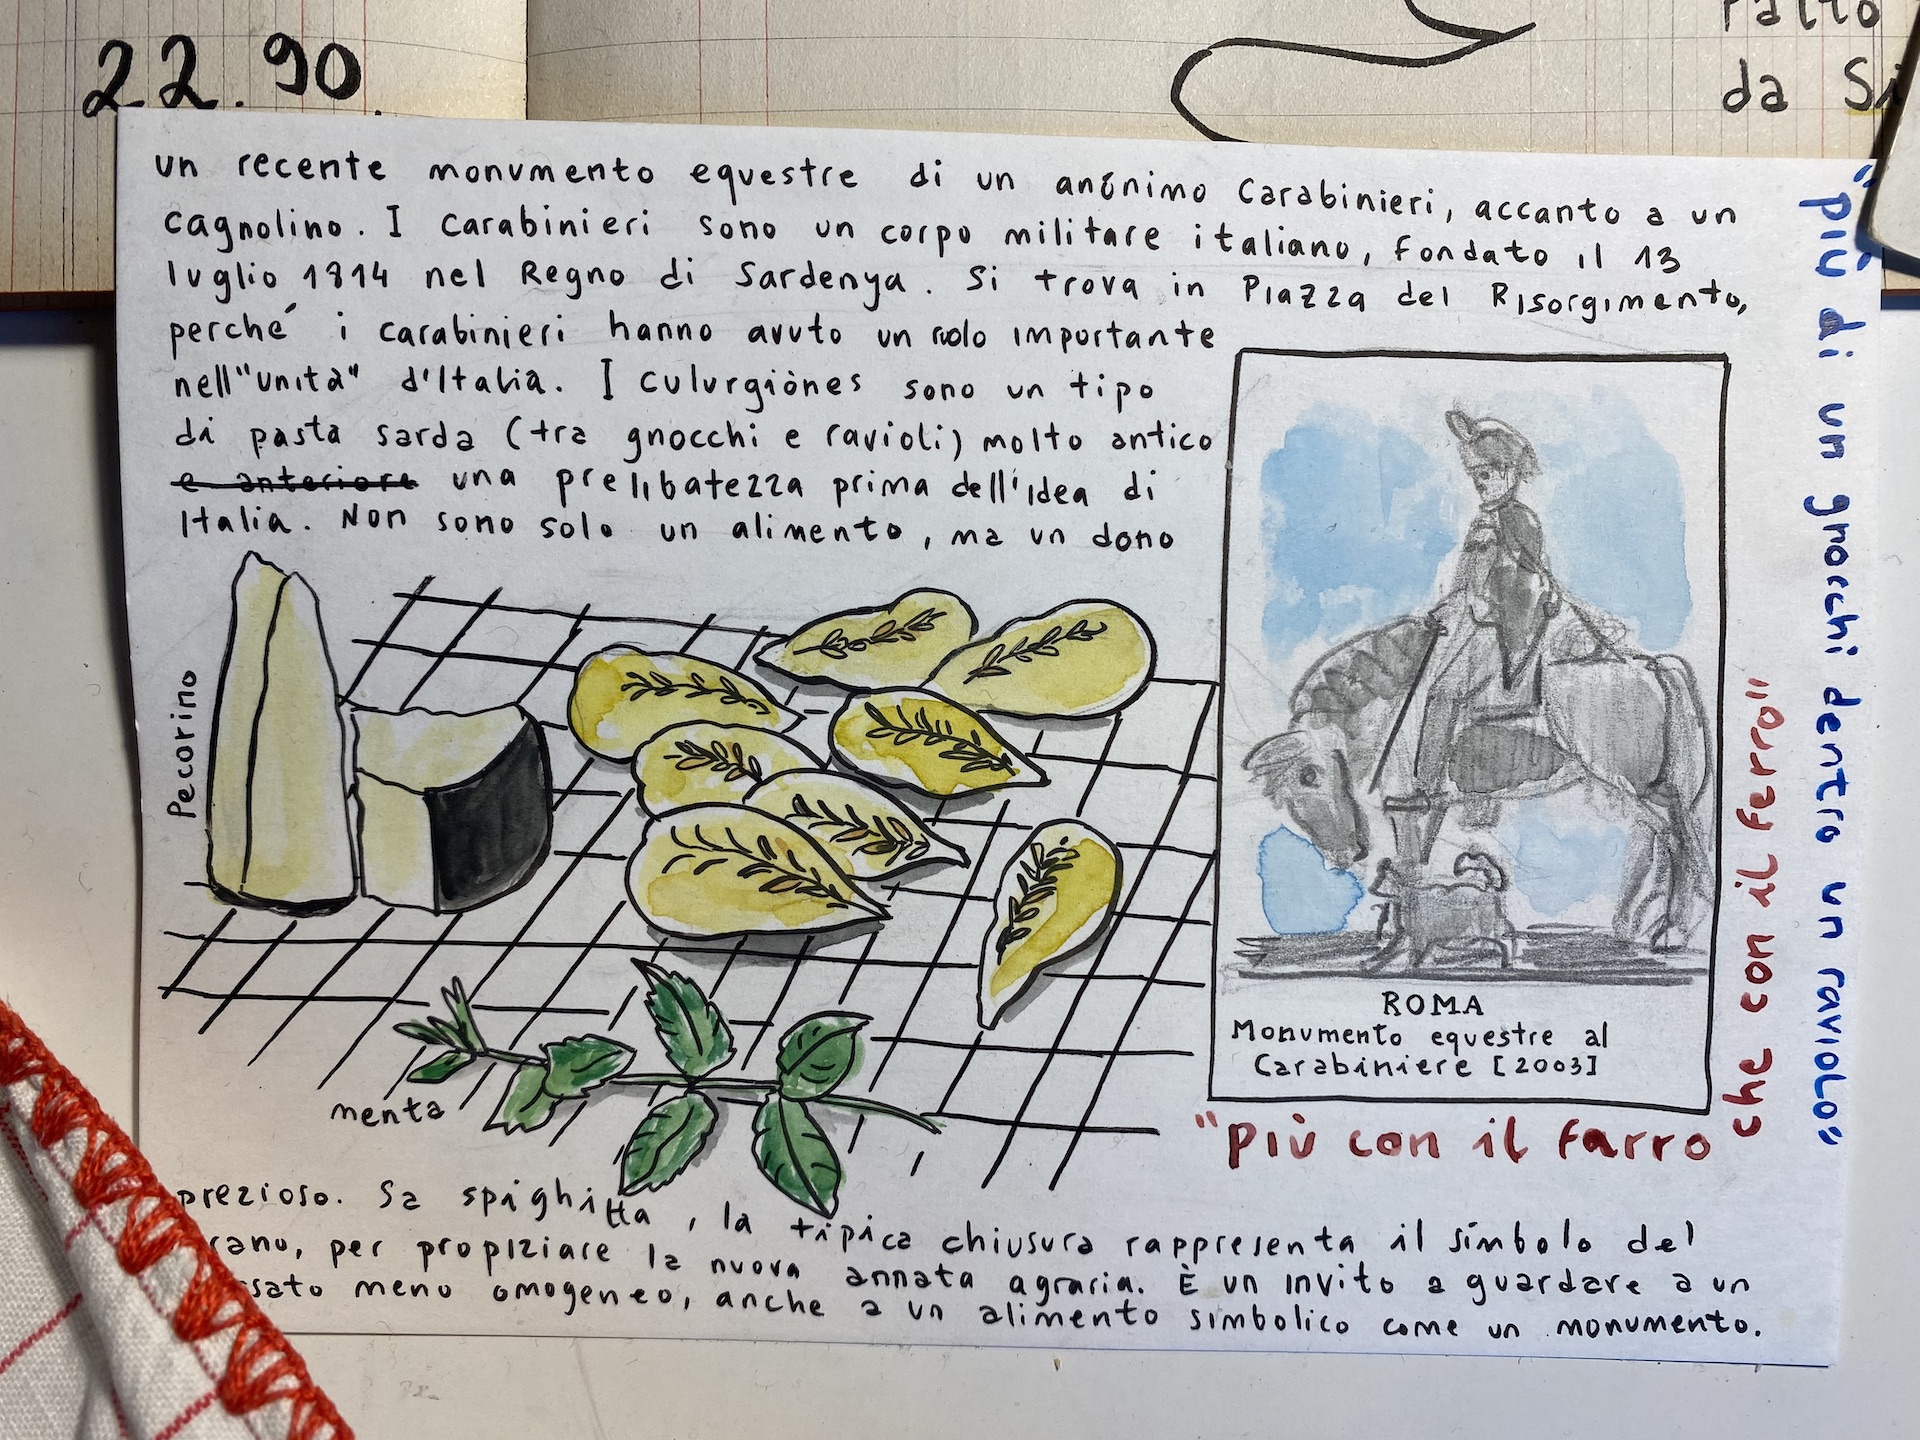 22.90
ratto
da Si
un recente monumento equestre di un anonimo Carabinieri, accanto a un
cagnolino. I carabinieri sono un corpo militare italiano, fondato il 13
luglio 1814 nel Regno di Sardenya. Si trova in Piazza del Risorgimento,
perché i carabinieri hanno avuto un ruolo importante
nell'"unità" d'Italia. I culurgiònes sono un tipo
di pasta sarda (tra gnocchi e ravioli) molto antico
e anteriore una prelibatezza prima dell'idea di
Italia. Non sono solo un alimento, ma un dono
Pecorino
menta
ROMA
Monumento equestre al
Carabiniere [2003]
"più con il farro
che con il ferro"
"più di un gnocchi dentro un raviolo"
prezioso. Sa spighitta, la tipica chiusura rappresenta il simbolo del
rano, per propiziare la nuova annata agraria. È un invito a guardare a un
sato meno omogeneo, anche a un alimento simbolico come un monumento.